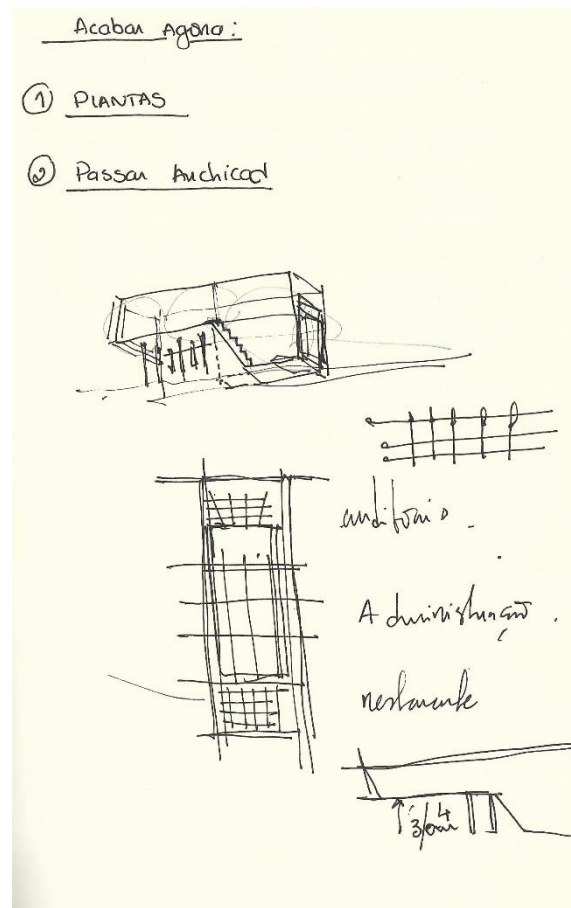 Acabar Agora:
① PLANTAS
② Passar Archicad
auditório.
Administração.
restaurante
3/ou 4